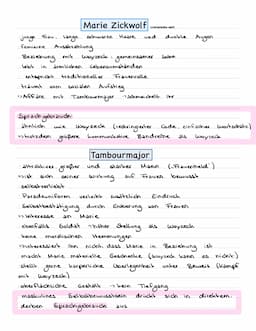 Marie Zickwolf
junge Frau, lange schwarze Haare und dunkle Augen
feminine Ausstrahlung
Beziehung mit Woyzeck, gemeinsamer Sohn
lebt in ärmlichen Lebensumständen
entspricht traditioneller Frauenrolle
träumt vom sozialen Aufstieg
Affäre mit Tambourmajor
Sprachgebrauch:
ähnlich wie Woyzeck (restringierter Code, einfacher Wortschatz)
trotzdem größere kommunikative Bandbreite als Woyzeck
Tambourmajor
attraktiver, großer und starker Mann ("Frauenheld")
ist sich seiner Wirkung auf Frauen bewusst
selbstverliebt
Paradeuniform verleiht stattlichen Eindruck
Selbstbestätigung durch Eroberung von Frauen
Interesse an Marie
ebenfalls Soldat, höher Stellung als Woyzeck
keine moralischen Hemmungen
interessiert ihn nicht, dass Marie in Beziehung ist
macht Marie materielle Geschenke (Woyzeck kann es nicht)
stellt gerne körperliche Überlegenheit unter Beweis (Kampf
mit Woyzeck)
oberflächliche Gestalt, kein Tiefgang
maskulines Selbstbewusstsein drückt sich in direktem,
derben Sprachgebrauch aus